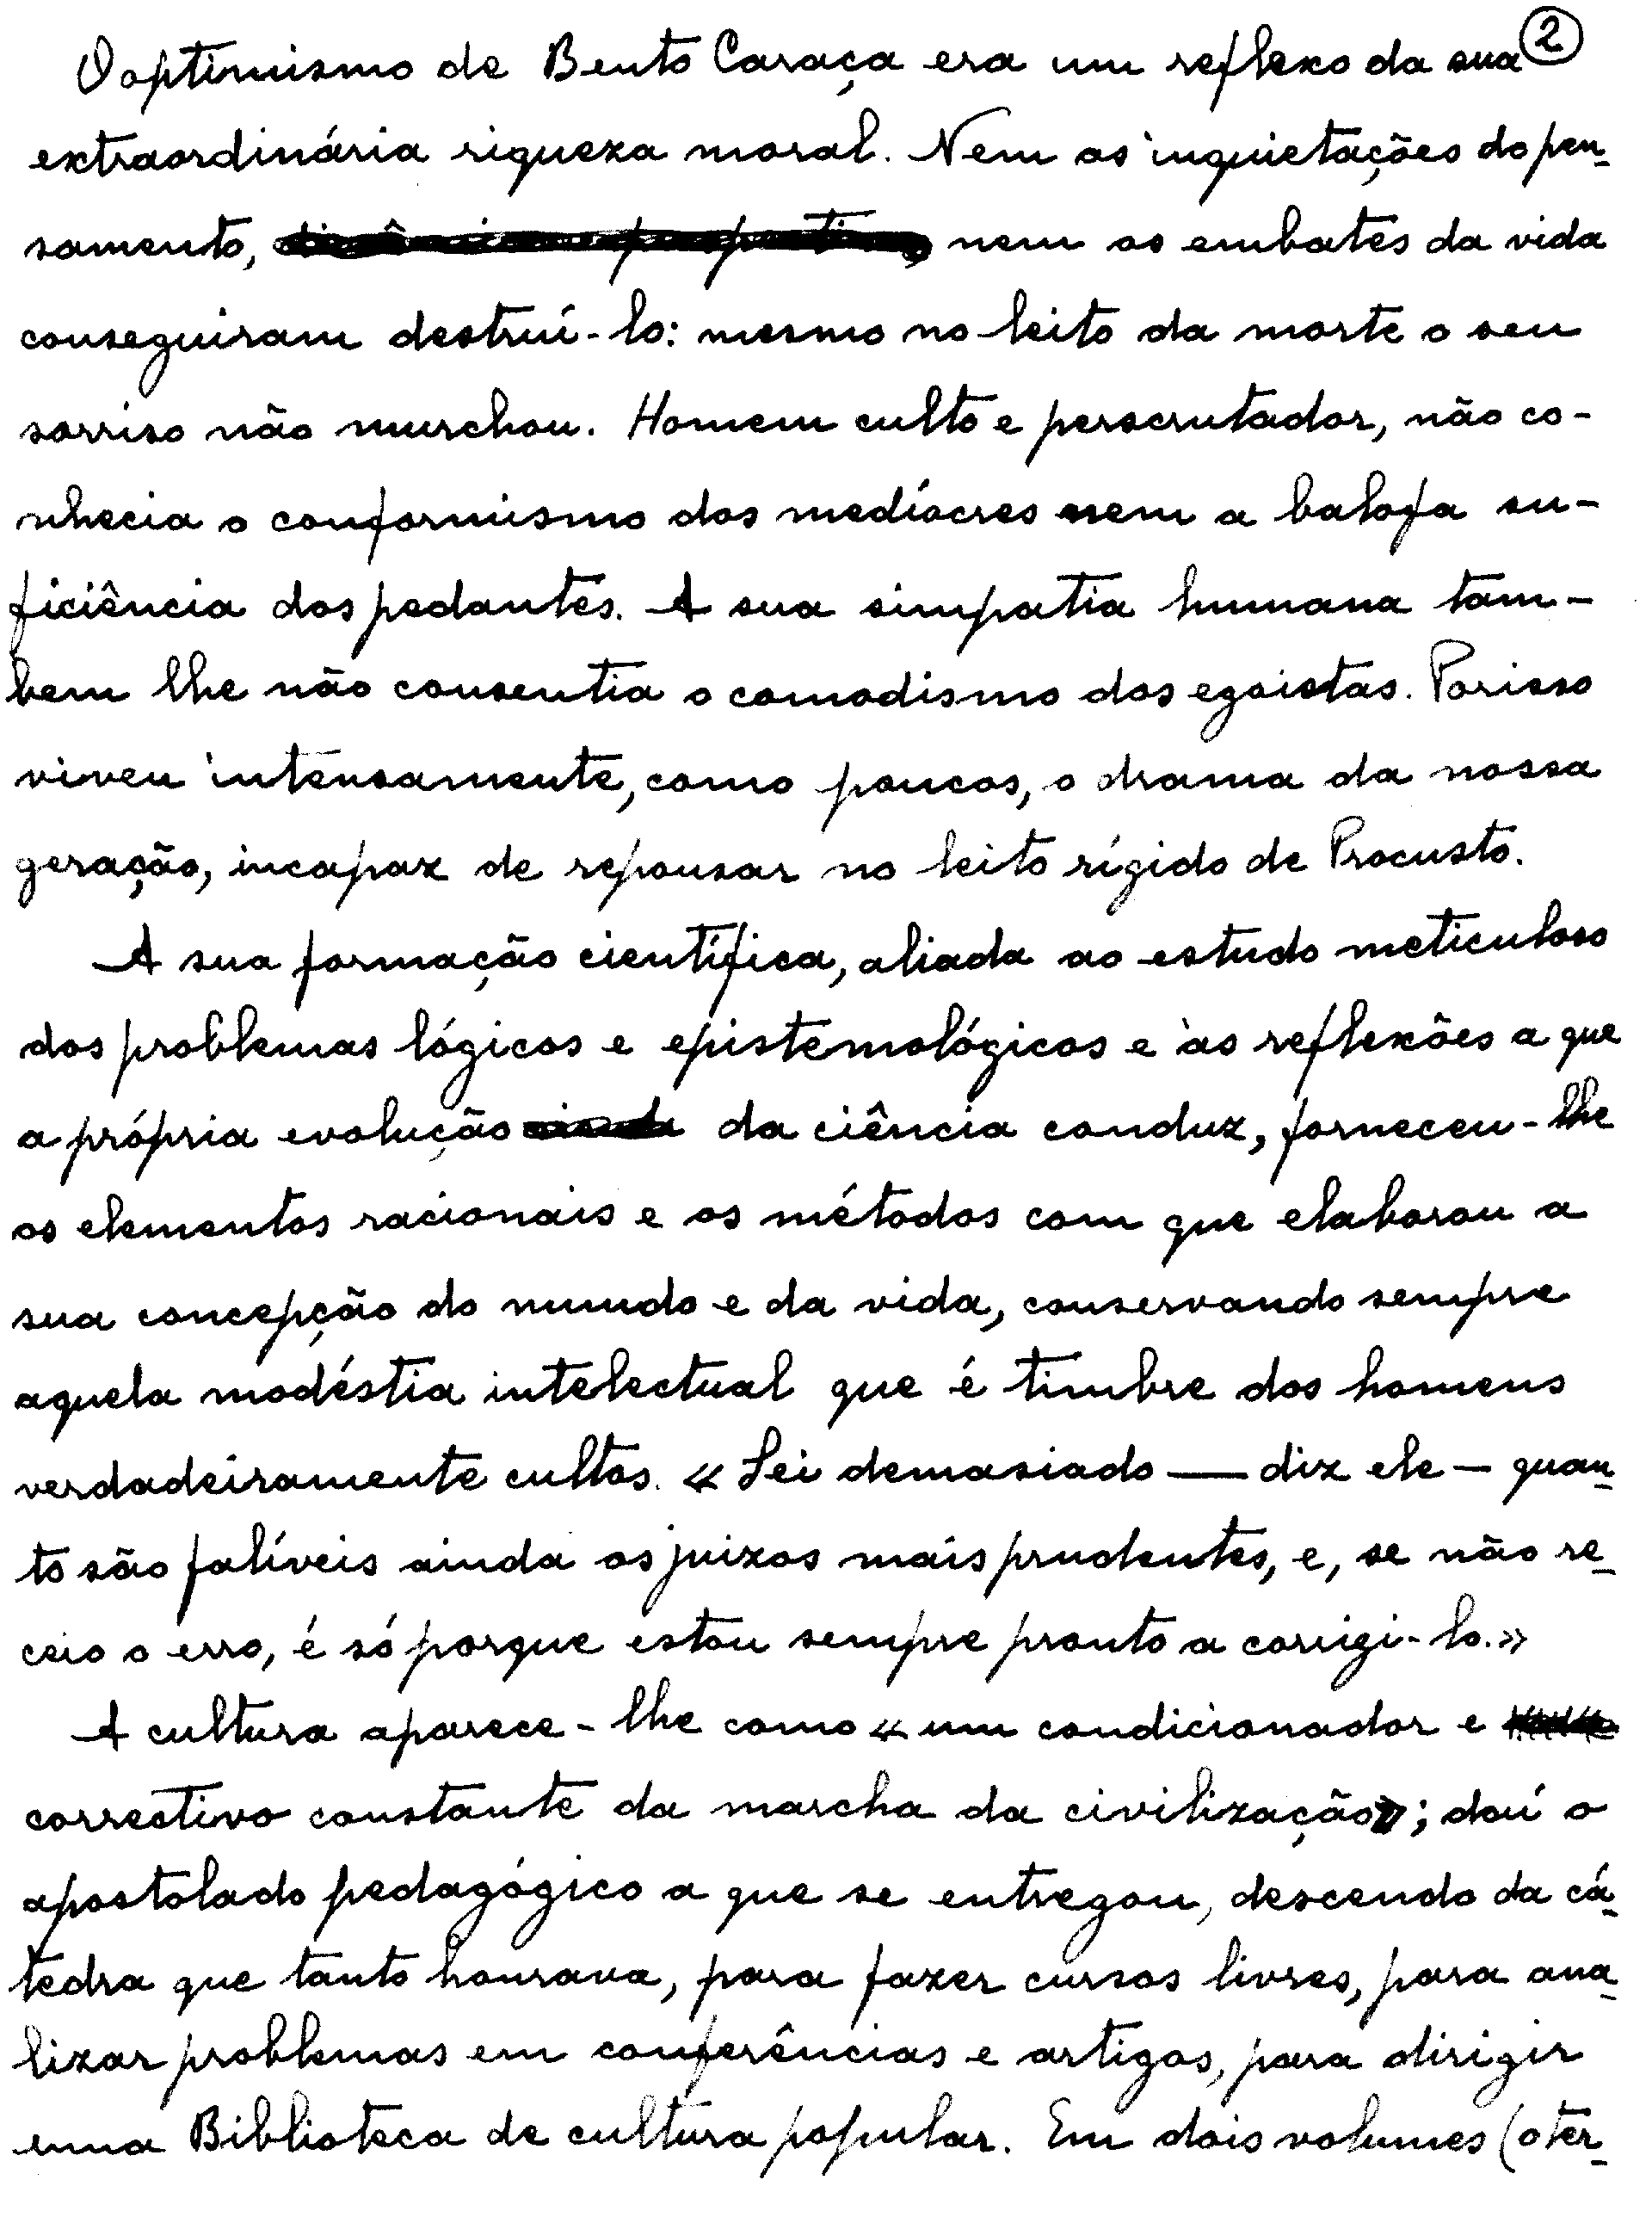 O optimismo de Bento Caraça era um reflexo da sua ②
extraordinária riqueza moral. Nem as inquietações do pen-
samento, nem os embates da vida
conseguiram destruí-lo: mesmo no leito da morte o seu
sorriso não murchou. Homem culto e perscrutador, não co-
nhecia o conformismo dos medíocres nem a balofa su-
ficiência dos pedantes. A sua simpatia humana tam-
bem lhe não consentia o comodismo dos egoistas. Porisso
viveu intensamente, como poucos, o drama da nossa
geração, incapaz de repousar no leito rígido de Procusto.
A sua formação científica, aliada ao estudo meticuloso
dos problemas lógicos e epistemológicos e às reflexões a que
a própria evolução da ciência conduz, forneceu-lhe
os elementos racionais e os métodos com que elaborou a
sua concepção do mundo e da vida, conservando sempre
aquela modéstia intelectual que é timbre dos homens
verdadeiramente cultos. «Sei demasiado — diz ele — quan-
to são falíveis ainda os juizos mais prudentes, e, se não re-
ceio o erro, é só porque estou sempre pronto a corrigi-lo.»
A cultura aparece-lhe como «um condicionador e
correctivo constante da marcha da civilização»; daí o
apostolado pedagógico a que se entregou, descendo da cá-
tedra que tanto honrava, para fazer cursos livres, para ana-
lizar problemas em conferências e artigos, para dirigir
uma Biblioteca de cultura popular. Em dois volumes (o ter-